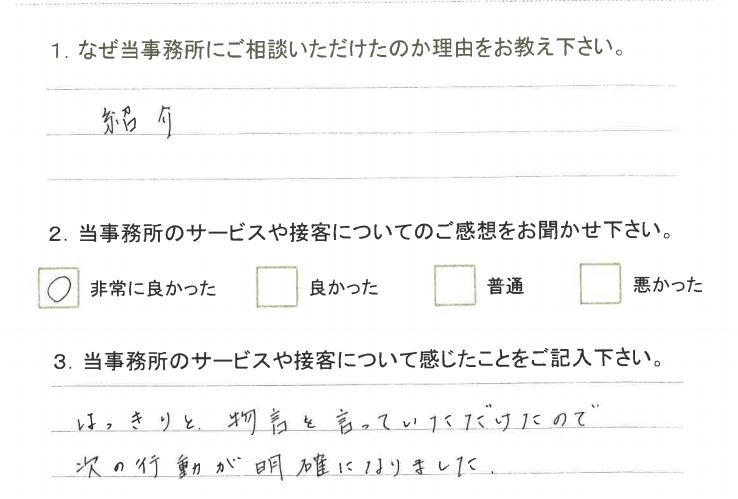 1. なぜ当事務所にご相談いただけたのか理由をお教え下さい。
紹介
2. 当事務所のサービスや接客についてのご感想をお聞かせ下さい。
○ 非常に良かった 良かった 普通 悪かった
3. 当事務所のサービスや接客について感じたことをご記入下さい。
はっきりと、物言を言っていただけたので
次の行動が明確になりました。